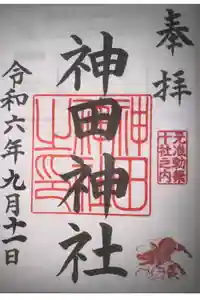 奉拝
神田神社
神田神社之印
元准勅祭
十社之内
令和六年九月十一日